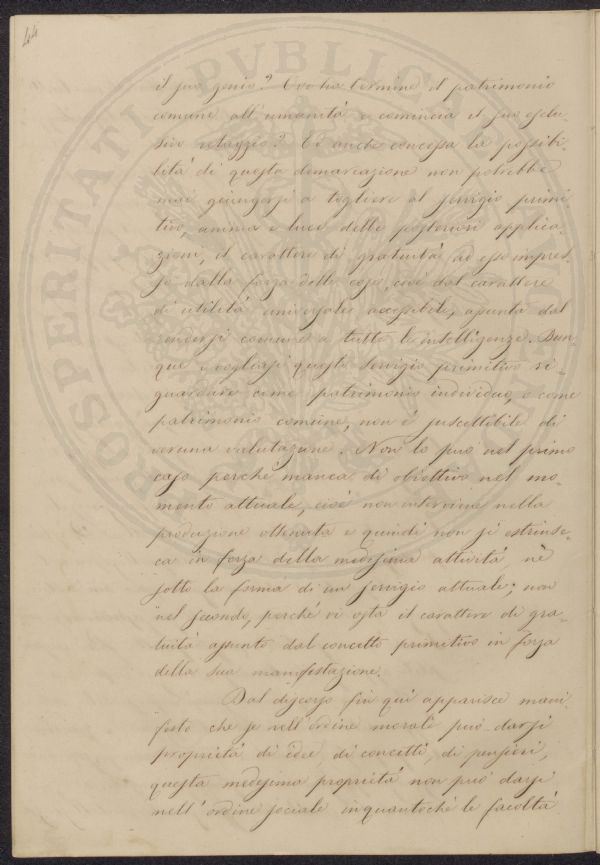 44
il suo genio? Ove ha termine il patrimonio
comune all'umanità e comincia il suo esclu-
sivo retaggio? Ed anche concessa la possibi-
lità di questa demarcazione non potrebbe
mai giungersi a togliere al servigio primi-
tivo, anima e luce delle posteriori applica-
zioni, il carattere di gratuità ad esso impres-
so dalla forza delle cose, cioè dal carattere
di utilità universale accessibile, assunta dal
rendersi comune a tutte le intelligenze. Dun-
que o vogliasi questo servigio primitivo ri-
guardare come patrimonio individuo, o come
patrimonio comune, non è suscettibile di
veruna valutazione. Non lo può nel primo
caso perché manca di obiettivo nel mo-
mento attuale, cioè non interviene nella
produzione ottenuta e quindi non si estrinse-
ca in forza della medesima attività, nè
sotto la forma di un servigio attuale; non
nel secondo, perché vi osta il carattere di gra-
tuità assunto dal concetto primitivo in forza
della sua manifestazione.
Dal discorso fin quì apparisce mani-
festo che se nell'ordine morale può darsi
proprietà di idee, di concetti, di pensieri,
questa medesima proprietà non può darsi
nell'ordine sociale inquantoché le facoltà
PROSPERITATI PUBLICAE AUGENDAE